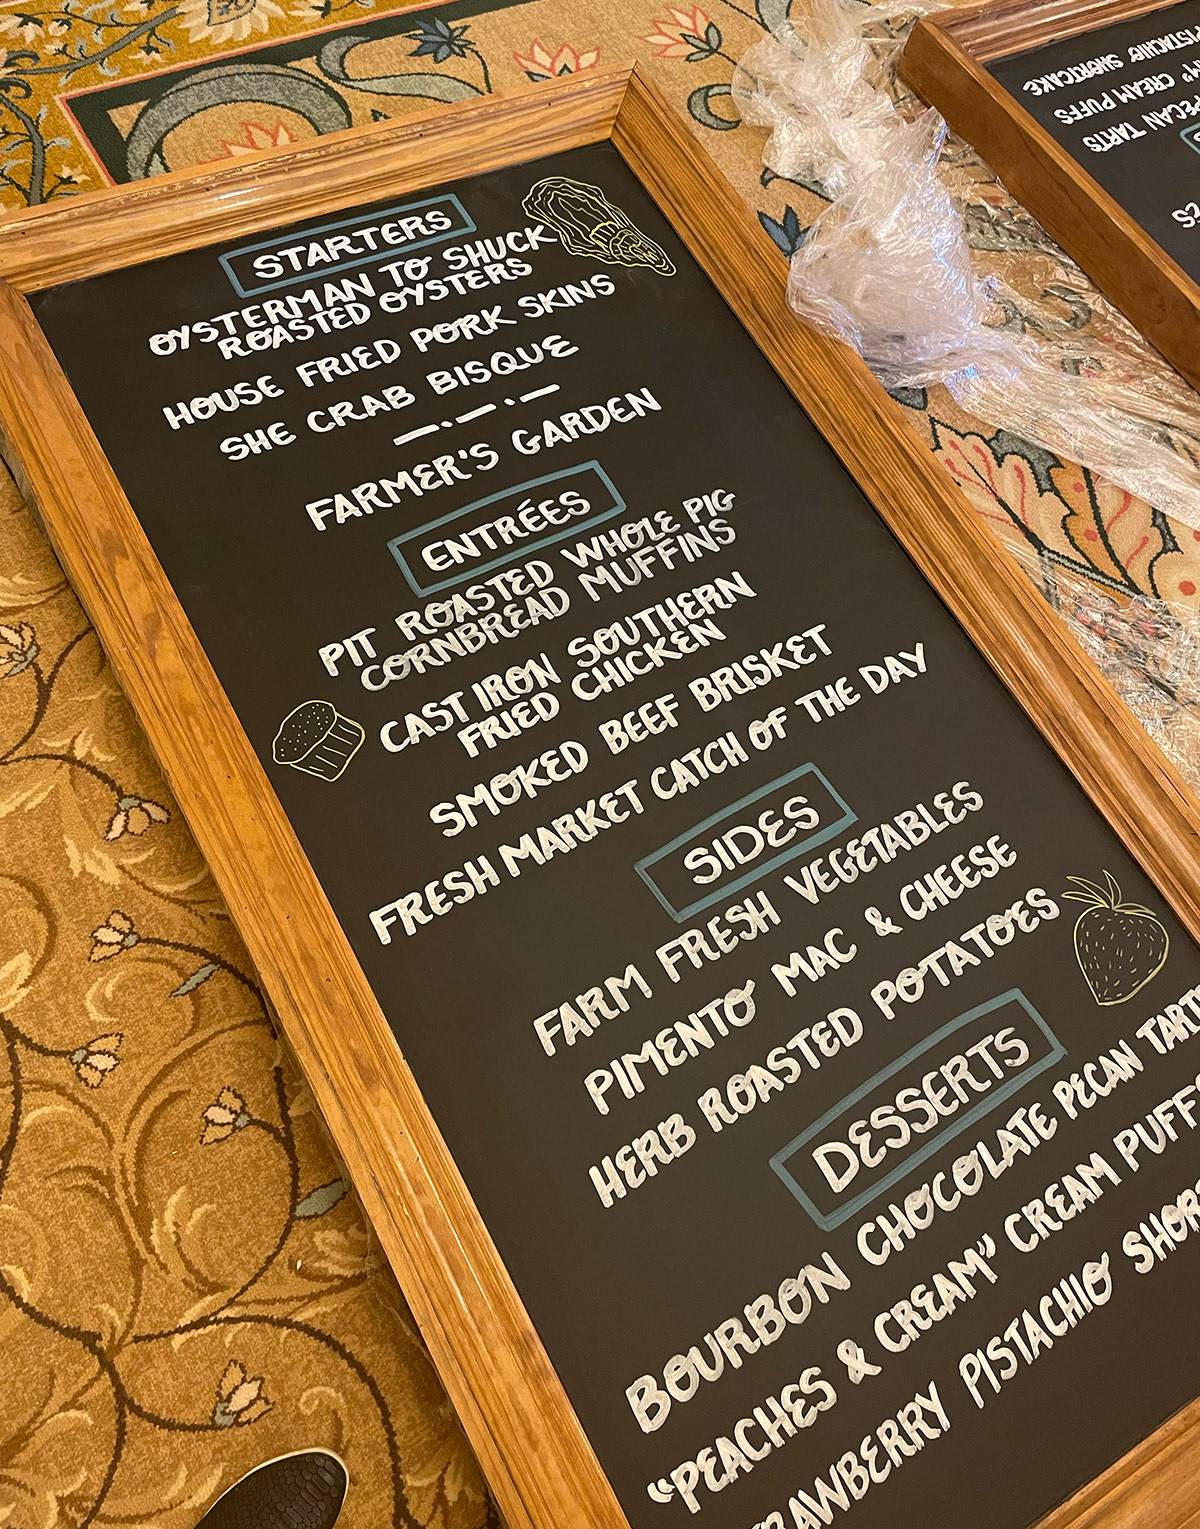 STARTERS
OYSTERMAN TO SHUCK
ROASTED OYSTERS
HOUSE FRIED PORK SKINS
SHE CRAB BISQUE
FARMER'S GARDEN
ENTRÉES
PIT ROASTED WHOLE PIG
CORNBREAD MUFFINS
CAST IRON SOUTHERN
FRIED CHICKEN
SMOKED BEEF BRISKET
FRESH MARKET CATCH OF THE DAY
SIDES
FARM FRESH VEGETABLES
PIMENTO MAC & CHEESE
HERB ROASTED POTATOES
DESSERTS
BOURBON CHOCOLATE PECAN
"PEACHES & CREAM" CREAM
PISTACHIO
PISTACHIO SHORTCAKE
CREAM PUFFS
PECAN TARTS